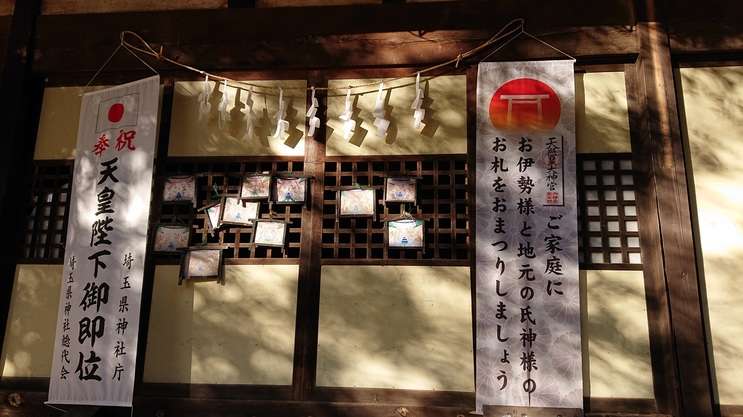 奉祝
天皇陛下御即位
埼玉県神社庁
埼玉県神社総代会
天照皇大神宮
ご家庭に
お伊勢様と地元の氏神様の
お札をおまつりしましょう